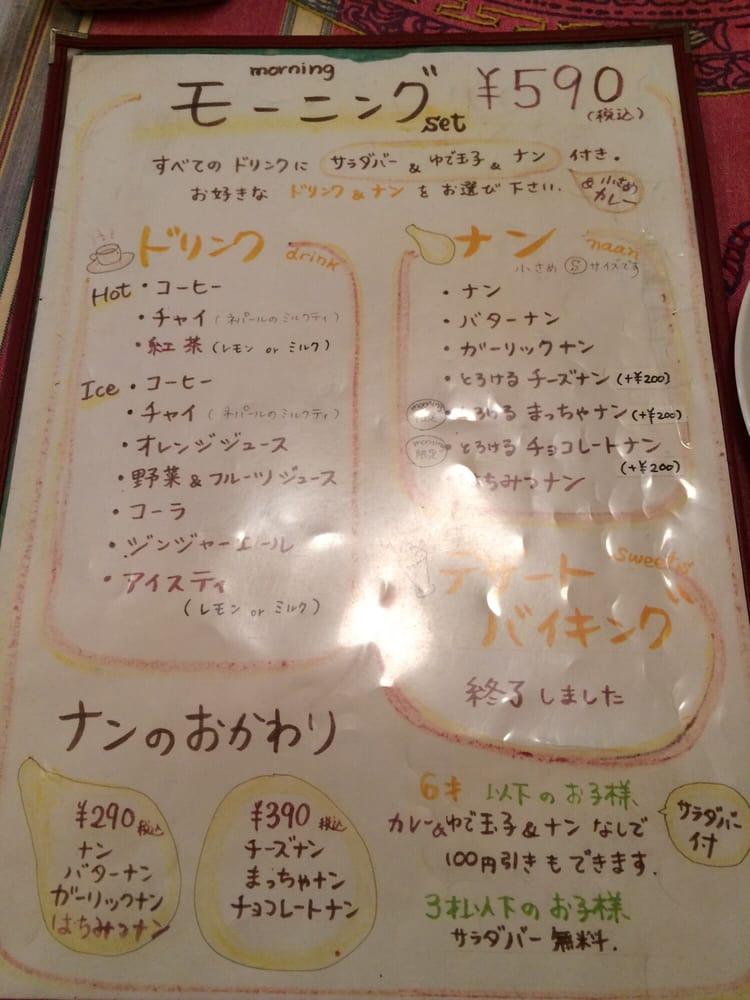 morning
モーニング set ¥590
(税込)
すべての ドリンクに サラダバー & ゆで玉子 & ナン 付き。
お好きな ドリンク & ナン を お選び 下さい。
& 小さめ
カレー
ドリンク drink
Hot ・コーヒー
・チャイ (ネパールのミルクティ)
・紅茶 (レモン or ミルク)
Ice ・コーヒー
・チャイ (ネパールのミルクティ)
・オレンジジュース
・野菜 & フルーツジュース
・コーラ
・ジンジャーエール
・アイスティ
(レモン or ミルク)
ナン naan
小さめ Ⓢサイズです
・ナン
・バターナン
・ガーリックナン
・とろける チーズナン (+¥200)
morning
・とろける まっちゃナン (+¥200)
morning
限定
・とろける チョコレートナン
(+¥200)
はちみつナン
デザート sweets
バイキング
終了しました
ナンのおかわり
¥290 税込
ナン
バターナン
ガーリックナン
はちみつナン
¥390 税込
チーズナン
まっちゃナン
チョコレートナン
6才 以下 の お子様、
カレー & ゆで玉子 & ナン なしで
100円引き も できます。
サラダバー
付
3才以下の お子様、
サラダバー 無料。